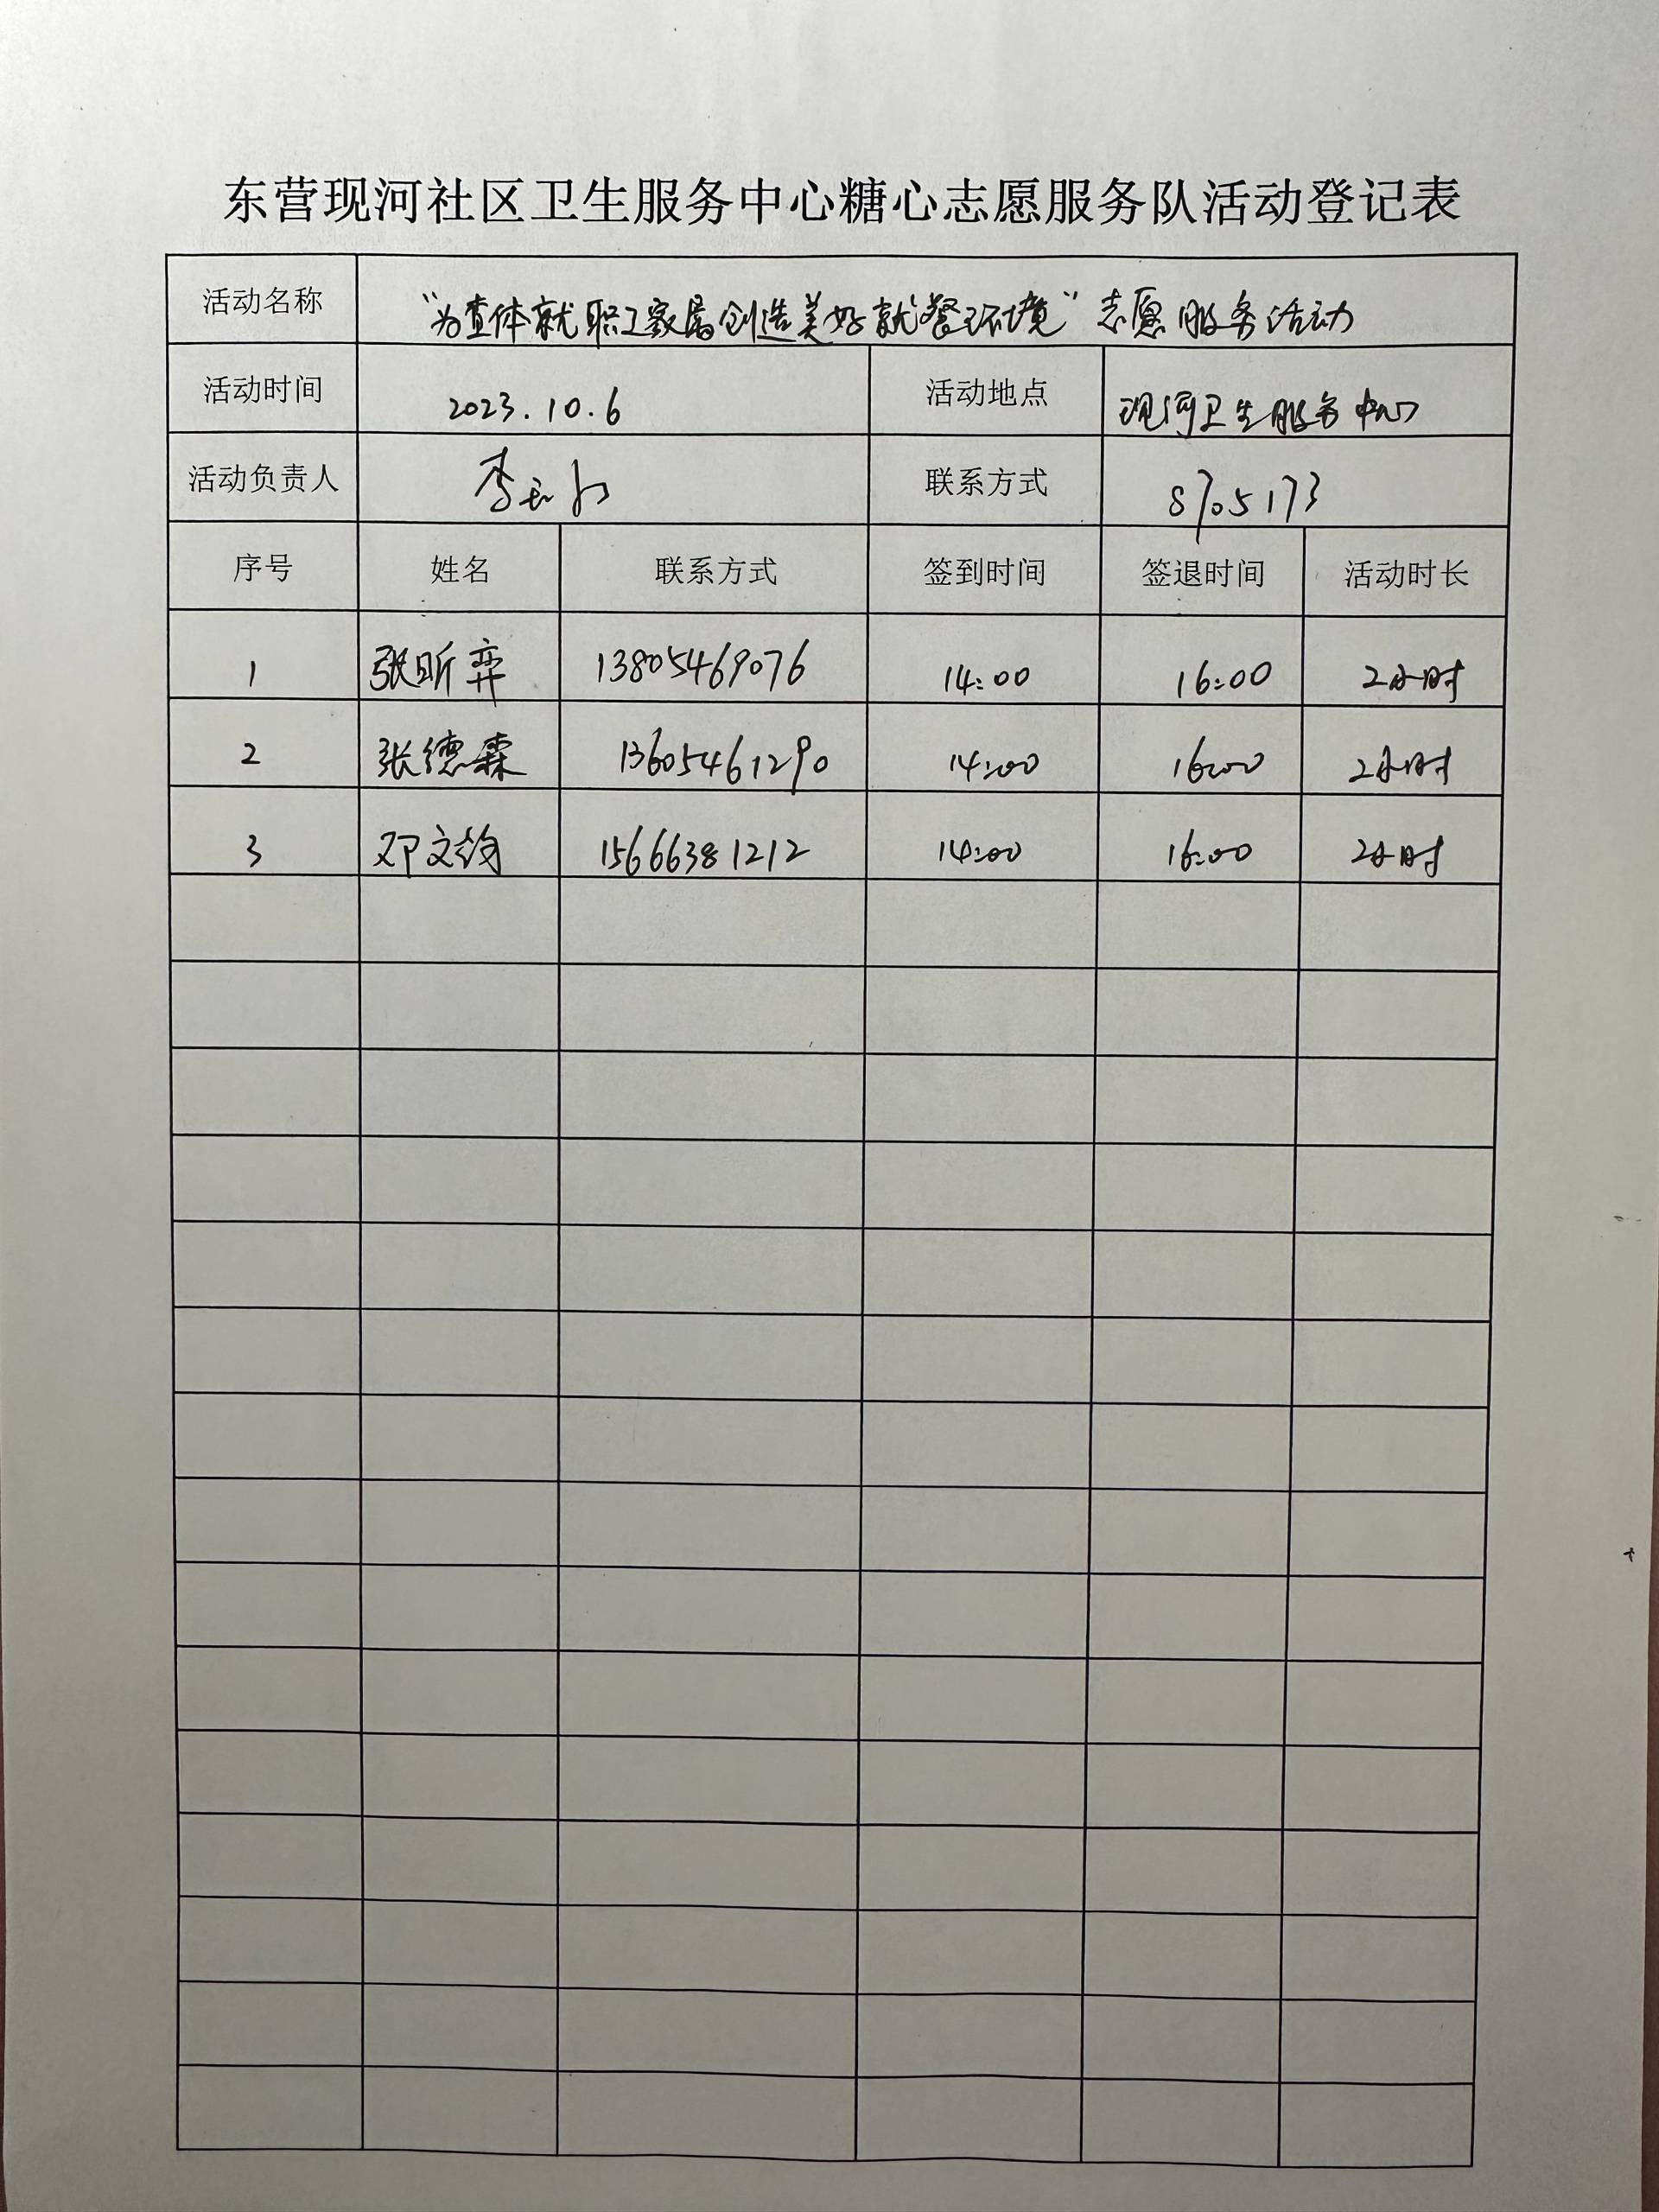 东营现河社区卫生服务中心糖心志愿服务队活动登记表
活动名称 "为查体就职工家属创造美好就餐环境"志愿服务活动
活动时间 2023.10.6 活动地点 现河卫生服务中心
活动负责人 李 联系方式 8705173
序号 姓名 联系方式 签到时间 签退时间 活动时长
1 张昕弈 13805469076 14:00 16:00 2小时
2 张德霖 13605461290 14:00 16:00 2小时
3 邓文 15666381212 14:00 16:00 2小时